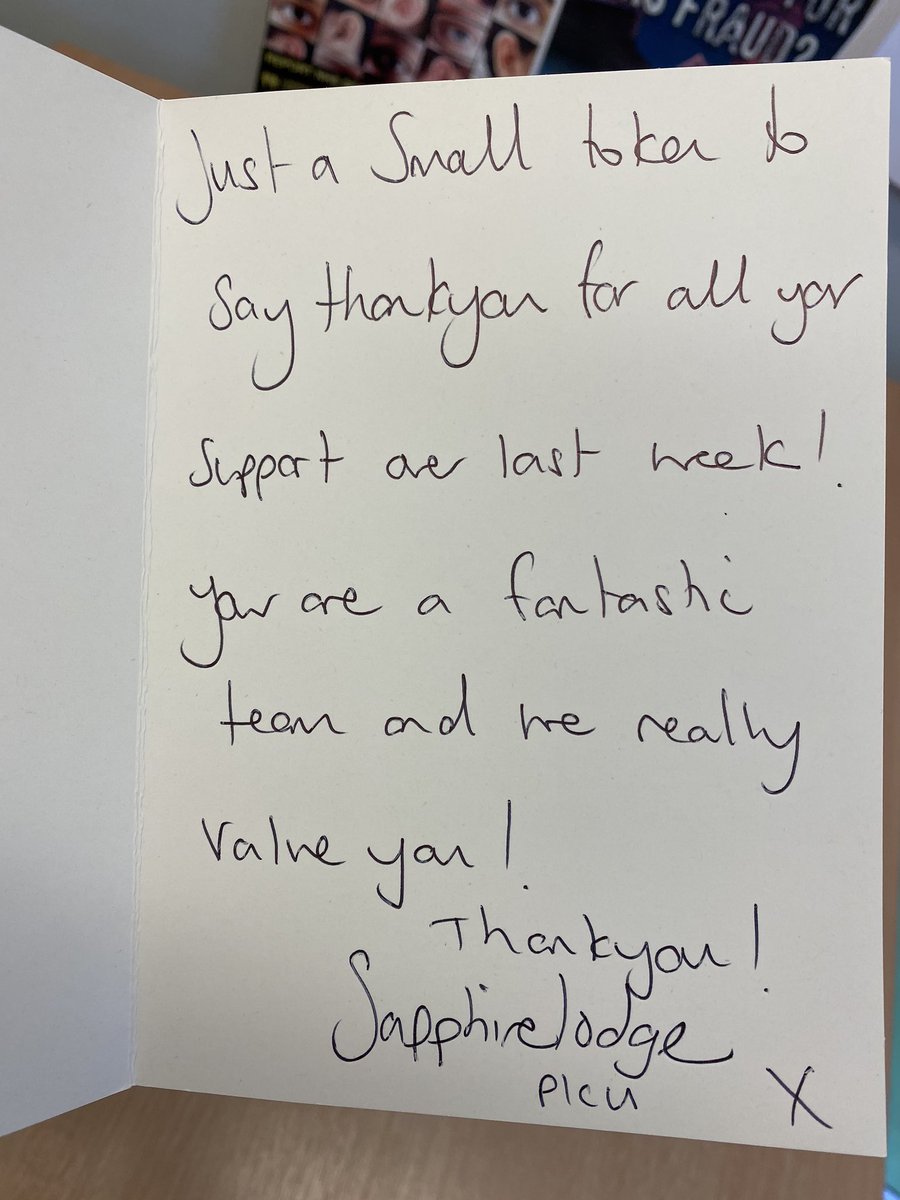 FRAUD?
Just a Small token to
Say thankyou for all your
Support over last week!
You are a fantastic
team and we really
Value you!
Thankyou!
Sapphire lodge
PICU X